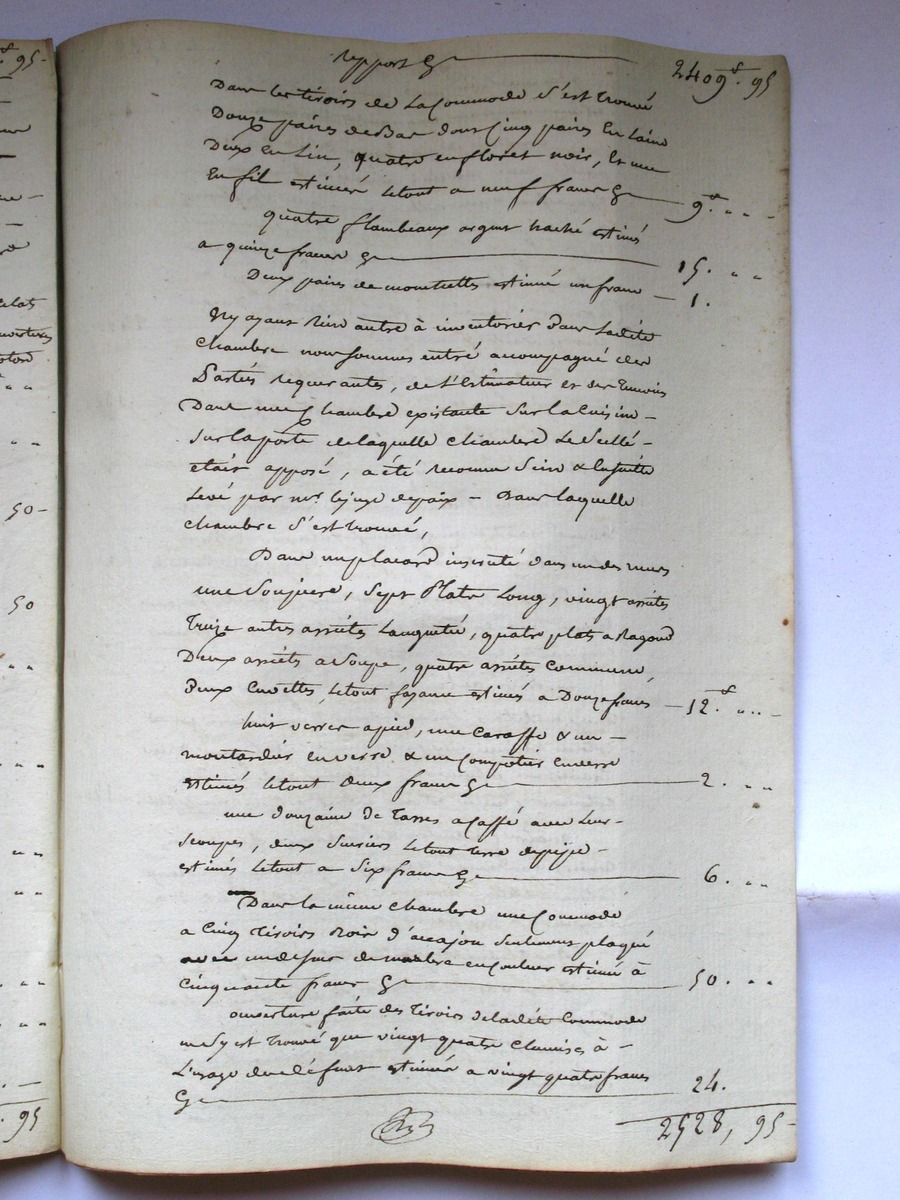 report 2409f. 95
Dans les tiroirs de la Commode s'est trouvé
Douze paires de Bas dont Cinq paires En Laine
Deux En Lin, quatre en floret noir, Et une
En fil estimés le tout a neuf francs 9f. " "
quatre flambeaux argent haché estimés
a quinze francs 15. " "
Deux paires de mouchettes estimé un franc — 1.
N'y ayant Rien autre à inventorier Dans Ladite
Chambre nous sommes entré accompagné des
Parties requerantes, de l'Estimateur et des Temoins
Dans une Chambre existante Sur la Cuisine —
Sur la porte de laquelle chambre Le Scellé —
etait apposé, a été reconnu Sain & Ensuite
Levé par mr. le juge de paix — Dans laquelle
Chambre s'est trouvé,
Dans un placard incrusté dans un des murs
une Soupiere, Sept Plats Long, vingt assietes
Treize autres assiétes Languetté, quatre plats a Ragout
Deux assiéts a Soupe, quatre assiétes Commune,
Deux Cuvettes, le tout fayance estimés a Douze francs — 12f. " " —
huit verres a pied, une Caraffe & un —
moutardier en verre & un Compotier en verre
estimés le tout deux francs 2. " "
une douzaine de Tasses a Caffé avec Leur —
Scoupes, deux Sucriers le tout terre de pipe —
estimés le tout a Six francs 6. " "
Dans la même chambre une Commode
a Cinq Tiroirs Noir d'accajou Seulement plaqué
avec un dessus de marbre en Couleur estimée à
Cinquante francs 50. " "
ouverture faite des Tiroirs de ladite Commode
ne S'y est Trouvé que vingt quatre Chemises à —
L'usage du défunt estimées a vingt quatre francs
24.
2528, 95 —
95 —
50 —
50
95